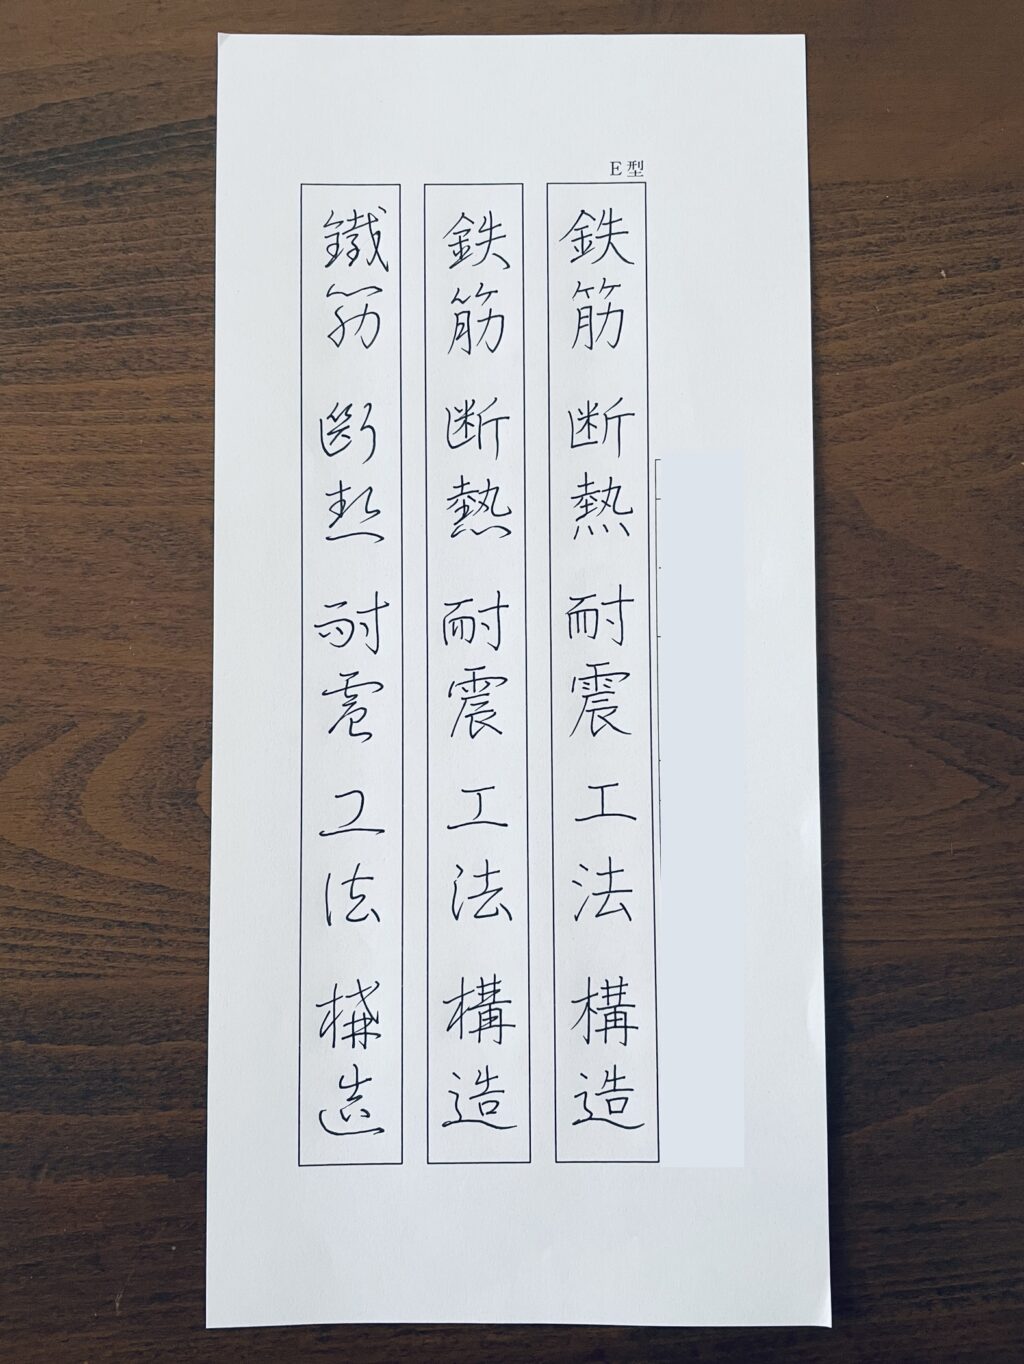 E型
鉄筋 断熱 耐震 工法 構造
鉄筋 断熱 耐震 工法 構造
鐵筋 斷熱 耐震 工法 構造